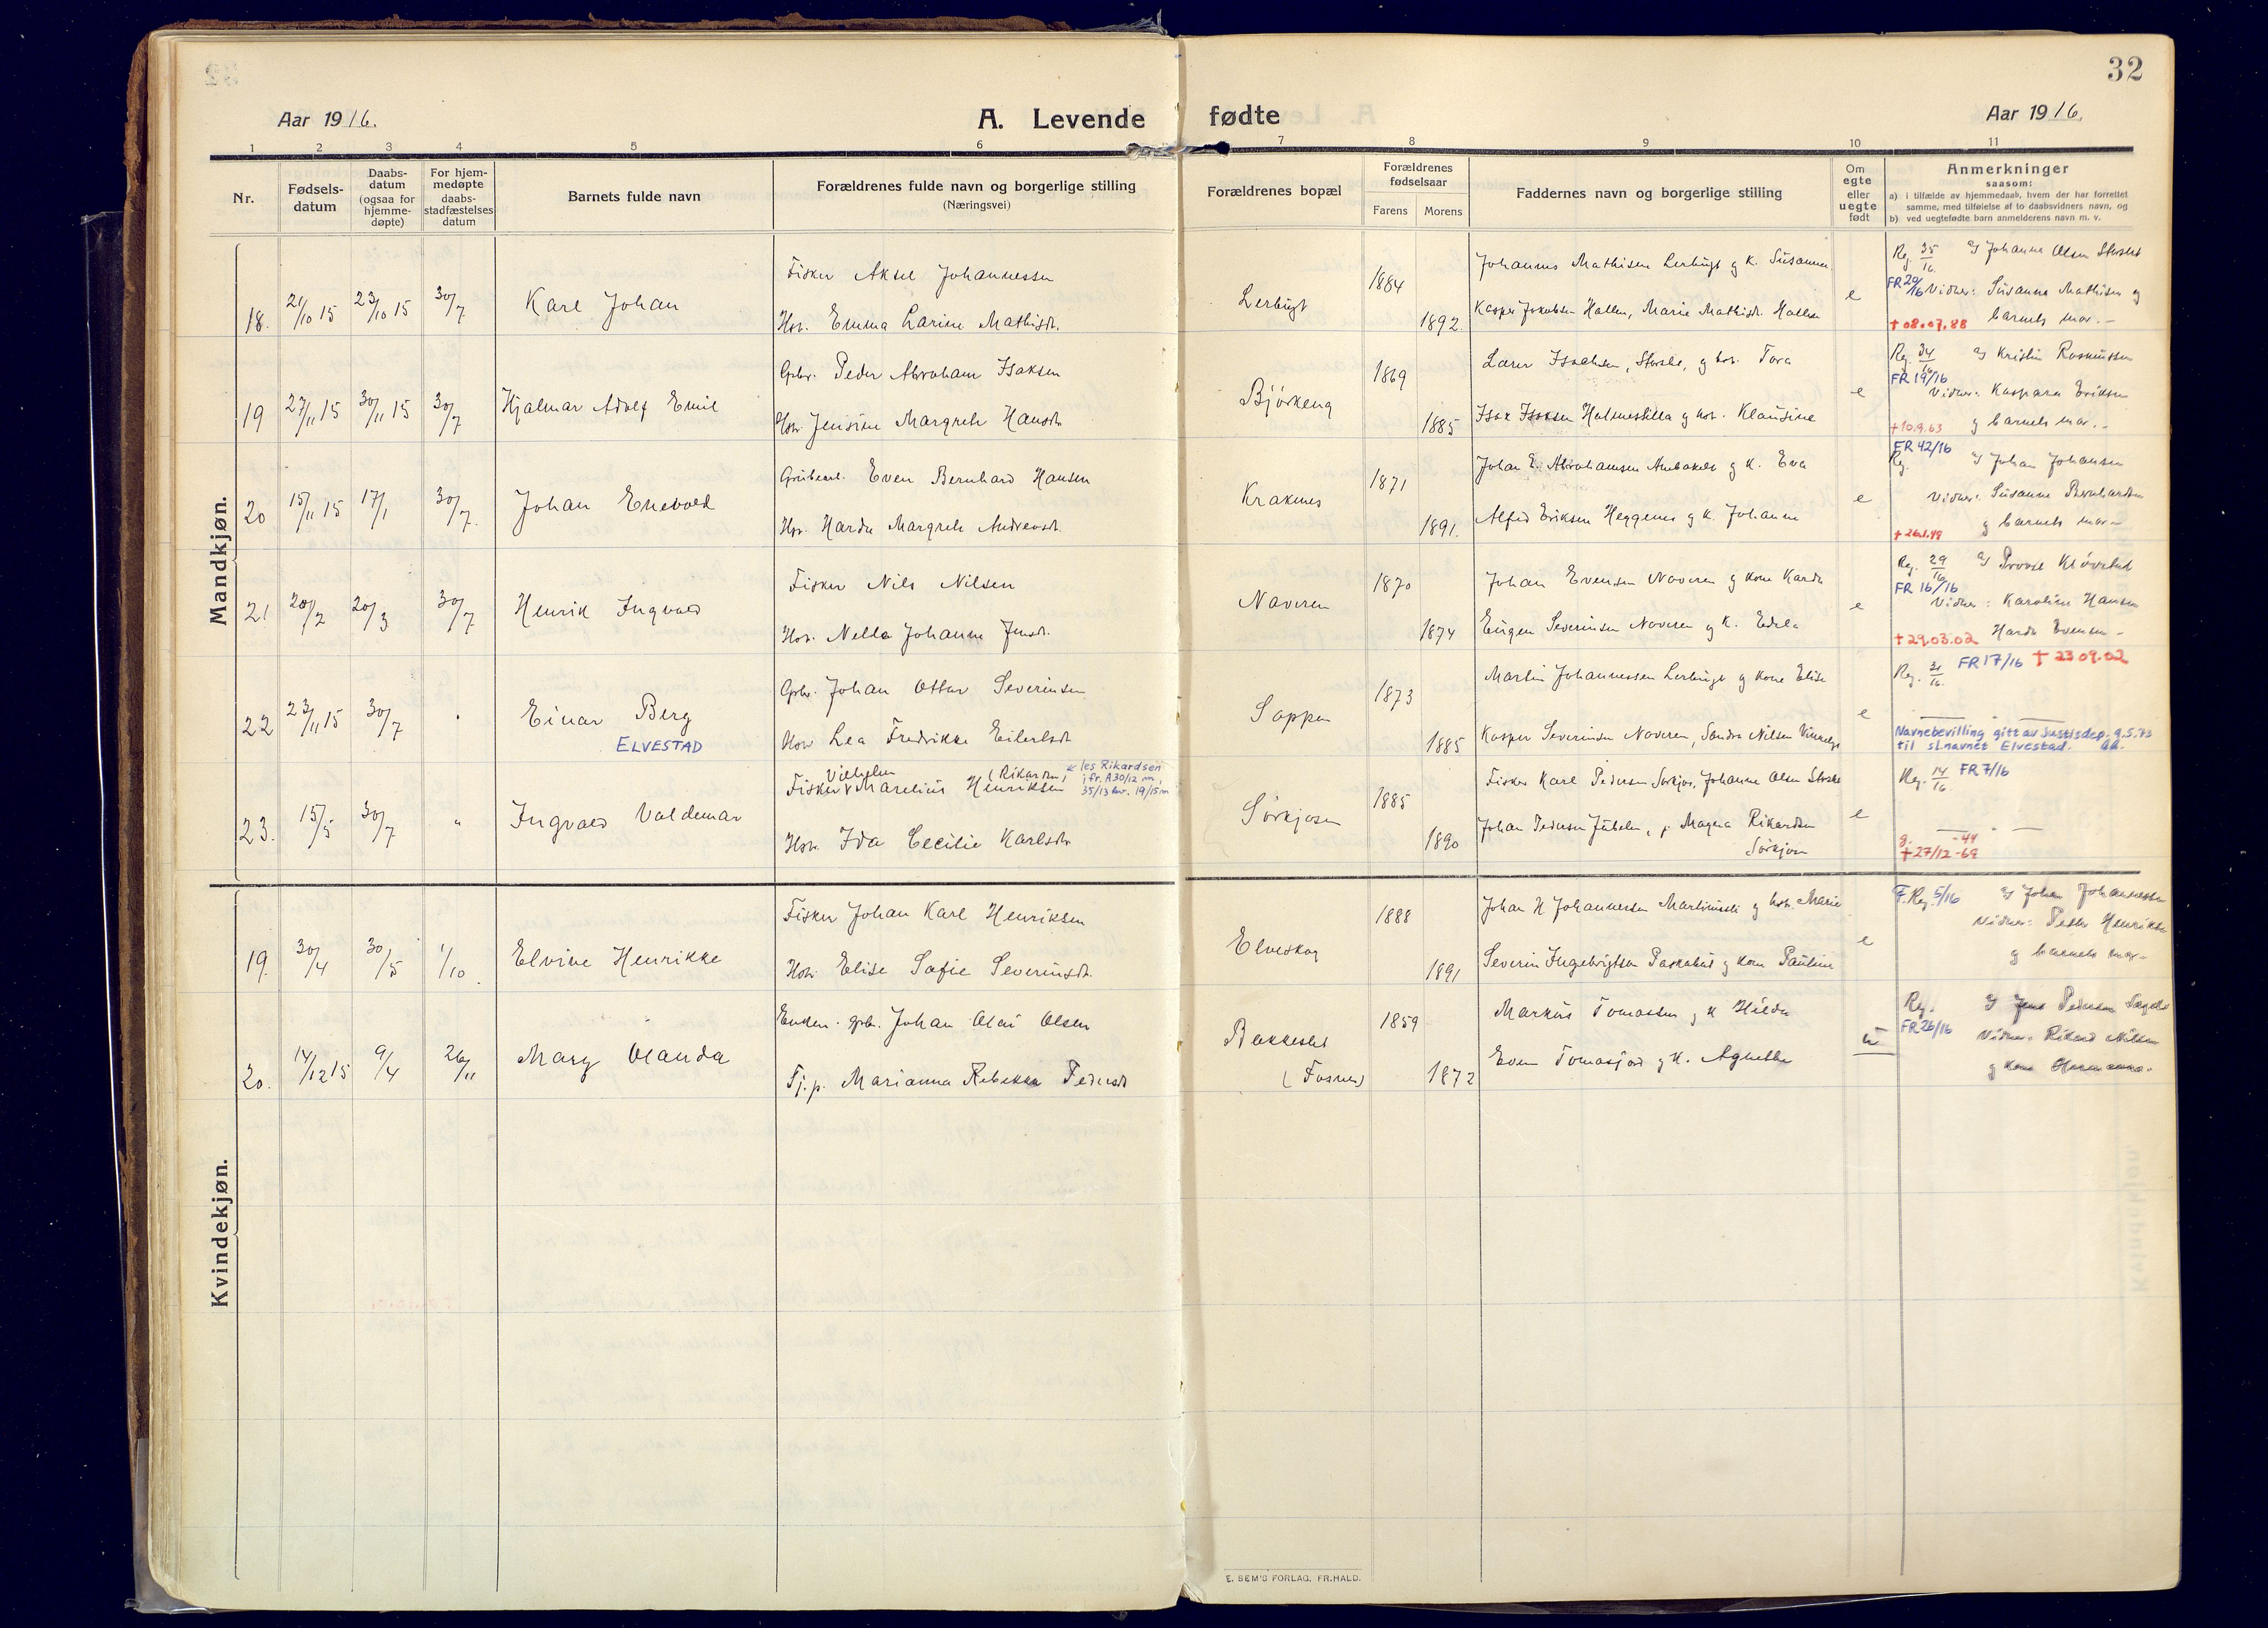 32
Aar 1916.
A. Levende fødte
Aar 1916.
1 2 3 4 5 6 7 8 9 10 11
Nr.
Fødsels-
datum
Daabs-
datum
(ogsaa for
hjemme-
døpte)
For hjem-
medøpte
daabs-
stadfæstelses
datum
Barnets fulde navn
Forældrenes fulde navn og borgerlige stilling
(Næringsvei)
Forældrenes bopæl
Forældrenes
fødselsaar
Farens Morens
Faddernes navn og borgerlige stilling
Om
egte
eller
uegte
født
Anmerkninger
saasom:
a) i tilfælde av hjemmedaab, hvem der har forrettet
samme, med tilføielse af to daabsvidners navn, og
b) ved uegtefødte barn anmelderens navn m. v.
Mandkjøn.
18. 21/10 15 23/10 15 30/7 Karl Johan
Fisker Aksel Johannessen
Hst. Emma Larine Mathisdt.
Lerbugt 1884 1892.
Johannes Mathisen Lerbugt g K. Susanna
Kasper Jakobsen Hallen, Marie Mathisdt. Hallen
e
Reg. 35/16. Johanne Olsen Storslet
FR 20/16 Vidner: Susanna Mathisen og
+ 08.07.88 barnets mor. -
19 27/11 15 30/11 15 30/7 Hjalmar Adolf Emil
Gbr. Peder Abraham Isaksen
Hst. Jensine Margrete Hansdt.
Bjørkeng 1869 1885
Isak Isaksen Holmestilla g hst. Klausine
e
Reg. 34/16 Kristin Rasmussen
FR 19/16
Vidner: Kaspara Eriksen
+ 10.9.63 g barnets mor. -
20 15/11 15 17/1 30/7. Johan Enevold
Grubearb. Even Bernhard Hansen
Hst. Harda Margrete Andreasdt.
Kraknes 1871 1891.
Johan E. Abrahamsen g K. Eva
Alfred Eriksen Heggenes g K. Johanne
e
FR 42/16
Reg. Johan Johansen
Vidner: Susanne Bernhardsen
+ 26.1.48 g barnets mor -
21 20/2 20/3 30/7 Henrik Ingvald
Fisker Nils Nilsen
Hst. Nella Johanne Jensdt.
Naveren 1870 1874
Johan Evensen Naveren g kone Karda
Eugen Severinsen Naveren g K. Edela
e
Reg. 29/16 Provst Kløvstad
FR 16/16
Vidner: Karoline Hansen
+ 29.03.02 Harda Evensen -
22 23/11 15 30/7 " Einar Berg
ELVESTAD
Gbr. Johan Ottar Severinsen
Hst Lea Fredrikke Eilertsdt
Sappen 1873 1885
Martin Johannessen Lerbugt g kone Elise
Kasper Severinsen Naveren, Sandra Nilsen
e
Reg. 31/16. FR 17/16 + 23 09.02
Navnebevilling gitt av Justisdep. 9.5.73
til sl.navnet Elvestad.
23. 15/5 30/7 " Ingvald Valdemar
Vilhelm (Rikardsen) ↙ les Rikardsen
Fisker v Marelius Henriksen jfr. A30/12 m,
35/13 kv. 19/15 m
Hst. Ida Cecilie Karlsdt.
Sørkjosen 1885 1890
Fisker Karl Pedersen Sørkjos, Johanne Olsen
Johan Pedersen Jubelen, p. Magna Rikardsen
Sørkjosen
e
Reg. 14/16 FR 7/16
g. -44
+ 27/12 -69
Kvindekjøn.
19. 30/4 30/5 1/10. Elvine Henrikke
Fisker Johan Karl Henriksen
Hst. Elise Sofie Severinsdt.
Elveskog 1888 1891
Johan H Johannessen g hst. Marie
Severin Ingebrigtsen g kone Pauline
e
F.Reg. 5/16 Johan Johannessen
Vidner: Peder Henriksen
g barnets mor -
20. 14/12 15 9/4 26/11 Mary Olanda
Enkem. gbr. Johan Olai Olsen
Tj.p. Marianna Rebekka Pedersdt
Bakkeslet
(Fosnes)
1859 1872
Markus Tomassen g K Hilda
Even Tomasjord g K. Agnethe
u
Reg. Jens Pedersen
FR 26/16 Vidner: Rikard Nilsen
g kone
E. SEM'S FORLAG, FR.HALD.